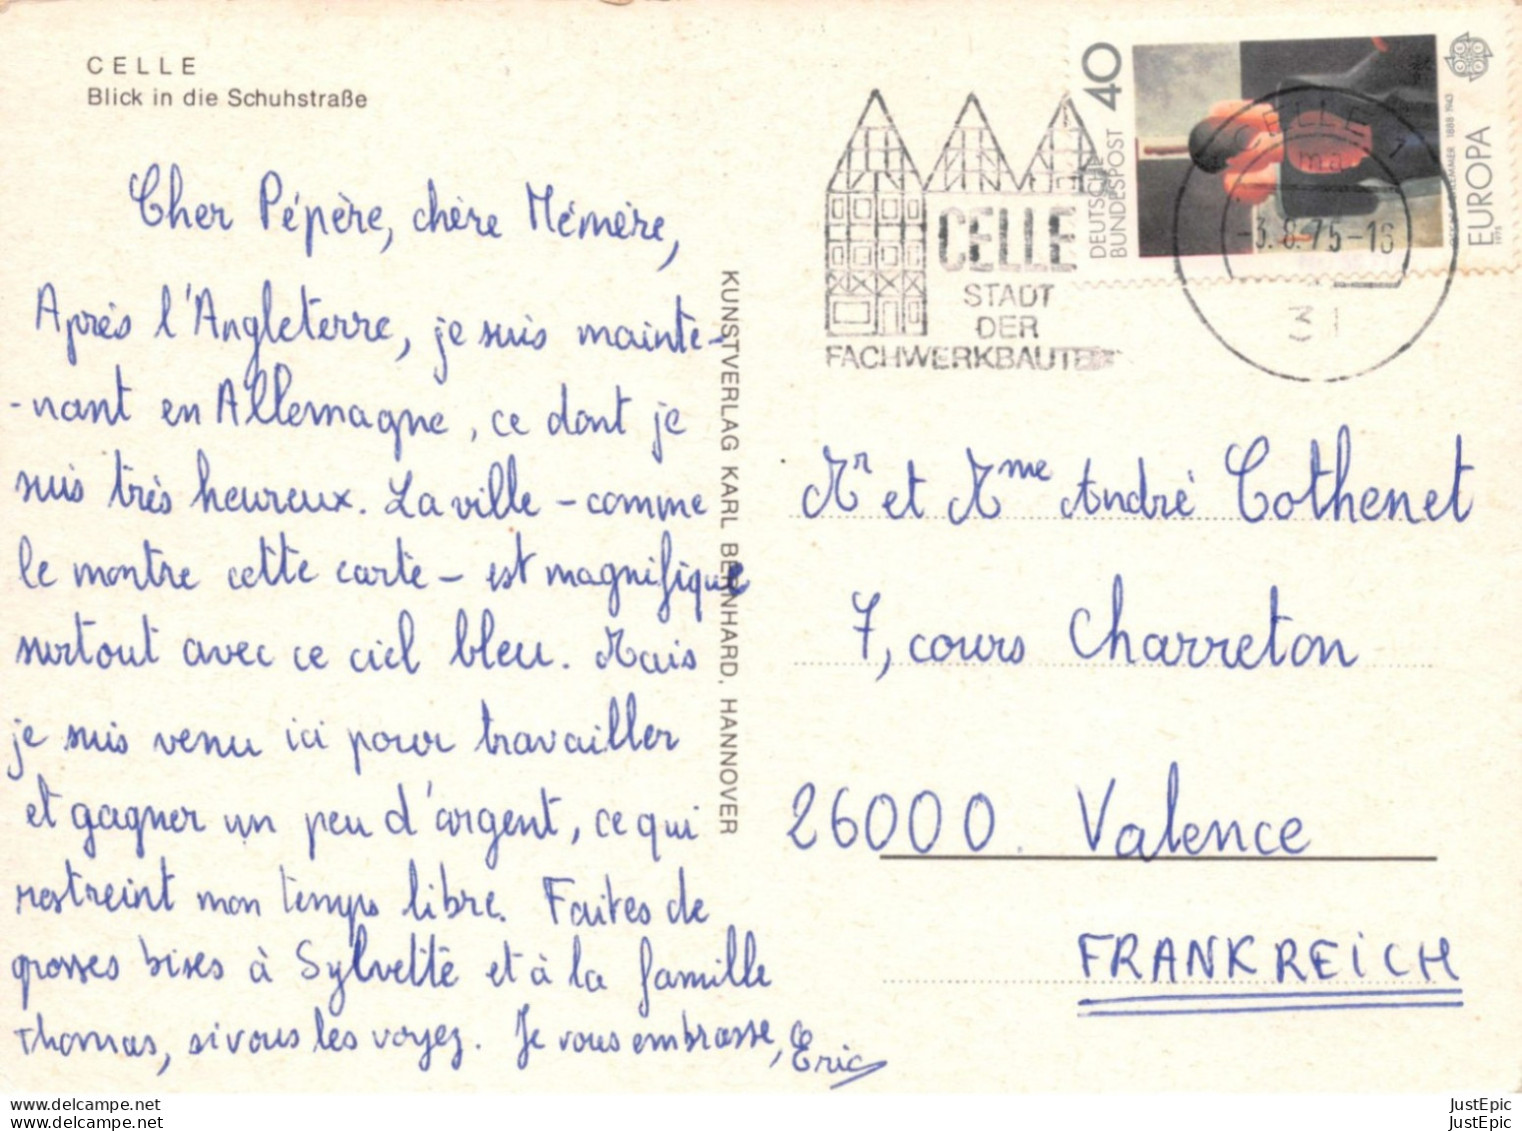 CELLE
Blick in die Schuhstraße
Cher Pépère, chère Mémère,
Après l'Angleterre, je suis mainte-
-nant en Allemagne, ce dont je
suis très heureux. La ville - comme
le montre cette carte - est magnifique
surtout avec ce ciel bleu. Mais
je suis venu ici pour travailler
et gagner un peu d'argent, ce qui
restreint mon temps libre. Faites de
grosses bises à Sylvette et à la famille
Thomas, si vous les voyez. Je vous embrasse, Eric
KUNSTVERLAG KARL BERNHARD, HANNOVER
CELLE
STADT
DER
FACHWERKBAUTEN
40
DEUTSCHE
BUNDESPOST
1888-1943
EUROPA
1975
CELLE 1
-3.8.75-18
31
Mr et Mme André Cothenet
7, cours Charreton
26000 Valence
FRANKREICH
www.delcampe.net
www.delcampe.net
JustEpic
JustEpic